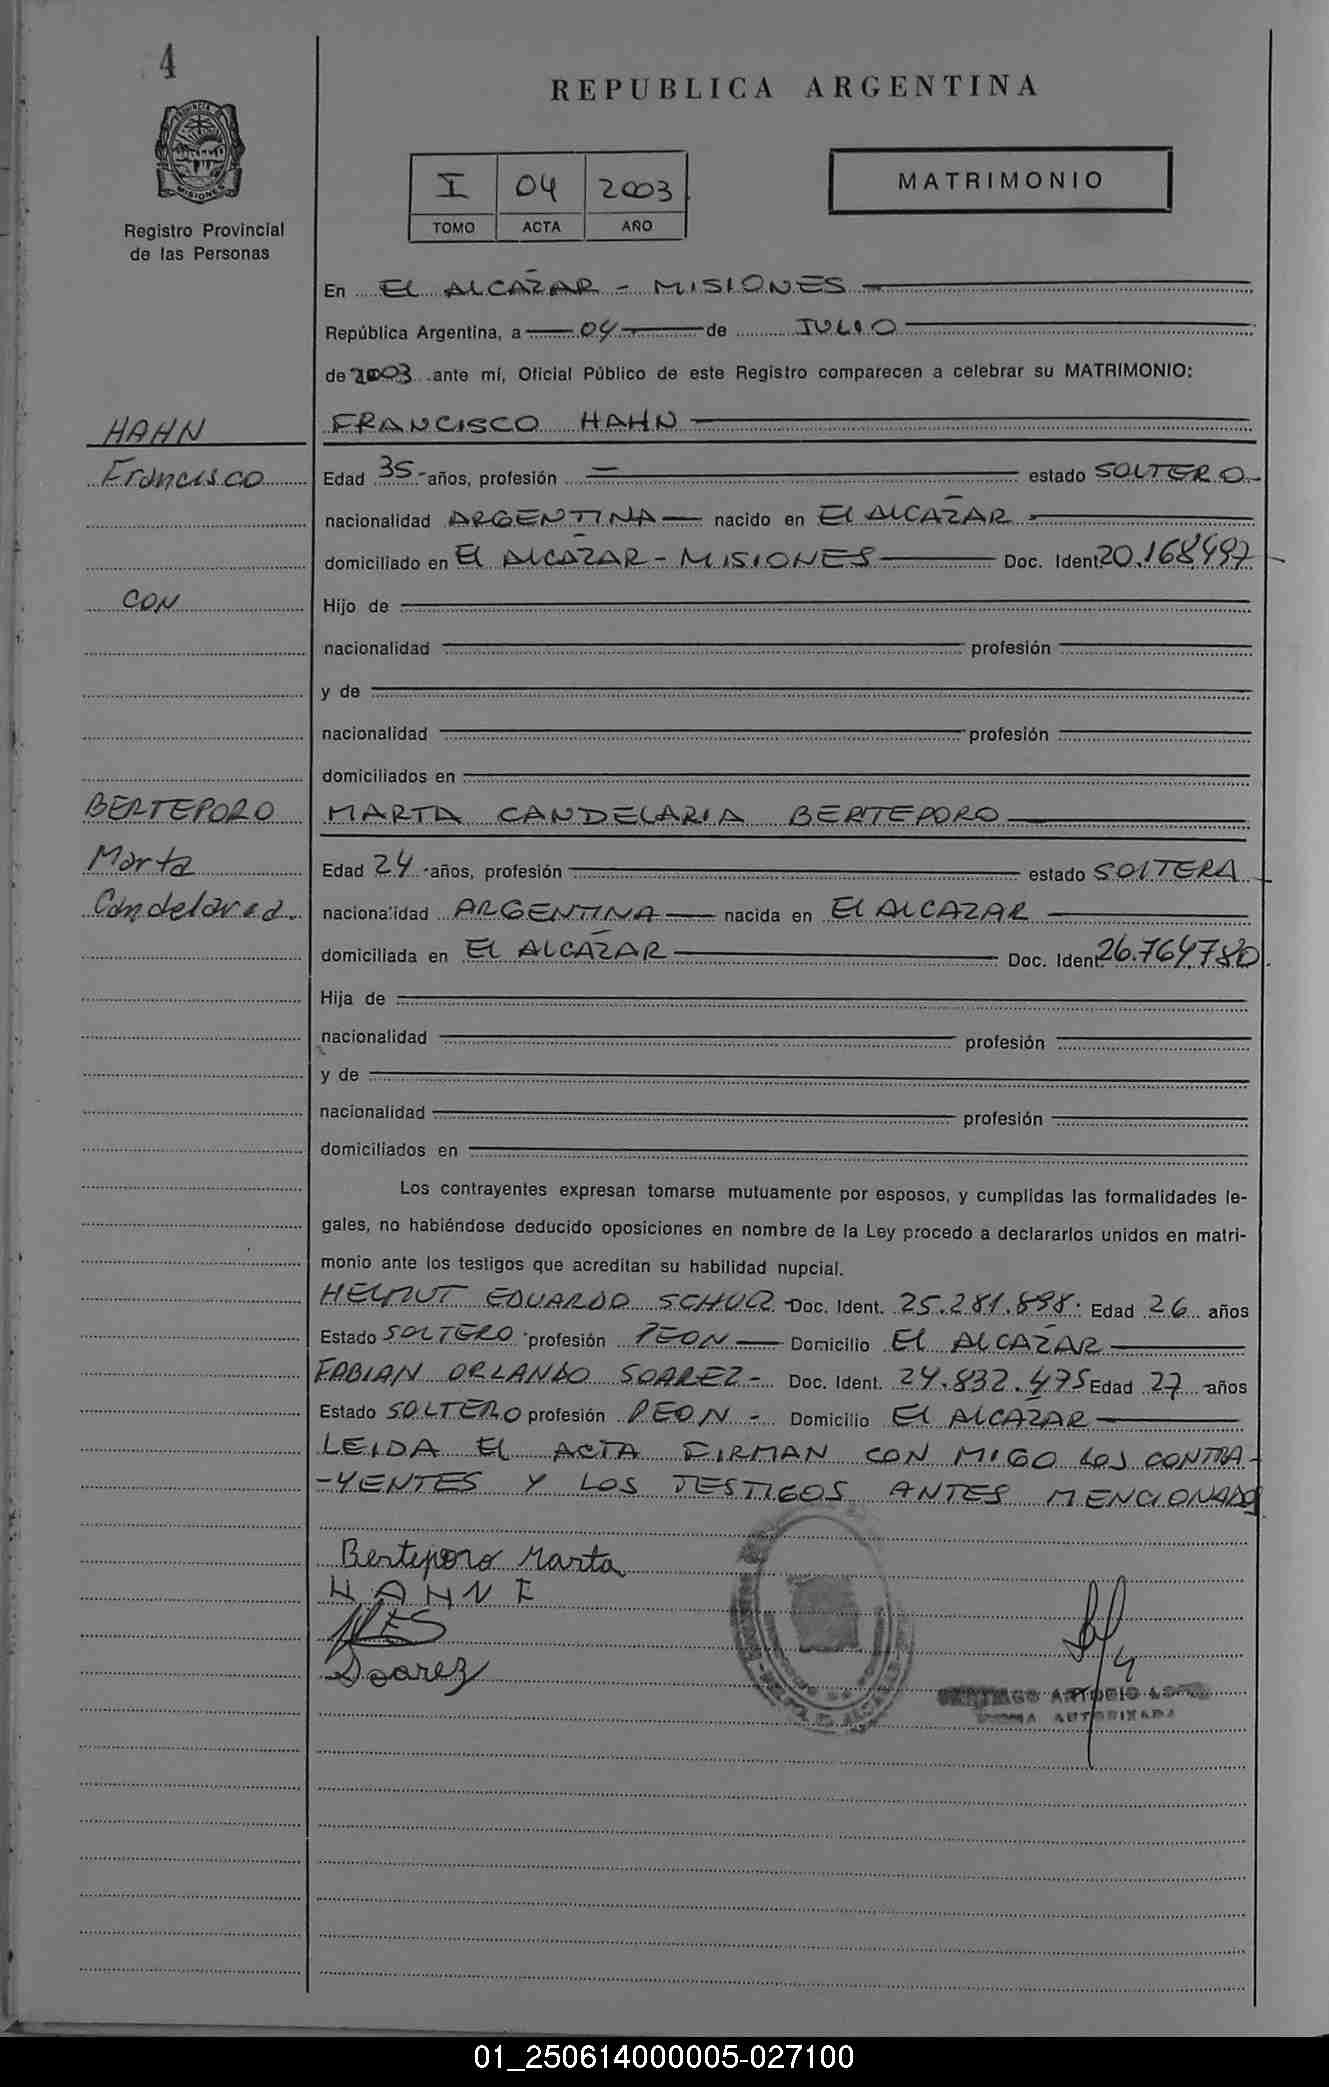 4
REPUBLICA ARGENTINA
I 04 2003
TOMO ACTA AÑO
MATRIMONIO
Registro Provincial
de las Personas
En EL ALCAZAR - MISIONES
República Argentina, a 04 de JULIO
de 2003 ante mí, Oficial Público de este Registro comparecen a celebrar su MATRIMONIO:
HAHN FRANCISCO HAHN
Francisco Edad 35 años, profesión — estado SOLTERO
nacionalidad ARGENTINA nacido en El ALCAZAR
domiciliado en El ALCAZAR - MISIONES Doc. Ident 20.168497
CON Hijo de
nacionalidad profesión
y de
nacionalidad profesión
domiciliados en
BERTEPORO MARTA CANDELARIA BERTEPORO
Marta Edad 24 años, profesión estado SOLTERA
Candelaria. nacionalidad ARGENTINA nacida en El ALCAZAR
domiciliada en El ALCAZAR Doc. Ident 26.764780
Hija de
nacionalidad profesión
y de
nacionalidad profesión
domiciliados en
Los contrayentes expresan tomarse mutuamente por esposos, y cumplidas las formalidades le-
gales, no habiéndose deducido oposiciones en nombre de la Ley procedo a declararlos unidos en matri-
monio ante los testigos que acreditan su habilidad nupcial.
HELMUT EDUARDO Doc. Ident. 25.281.898 Edad 26 años
Estado SOLTERO profesión PEON Domicilio El ALCAZAR
FABIAN ORLANDO SOAREZ - Doc. Ident. 24.832.475 Edad 27 años
Estado SOLTERO profesión PEON - Domicilio El ALCAZAR
LEIDA El ACTA FIRMAN CON MIGO LOS CONTRA-
-YENTES Y LOS TESTIGOS ANTES MENCIONADOS
Berteporo Marta
HAHN F
Soarez
01_250614000005-027100